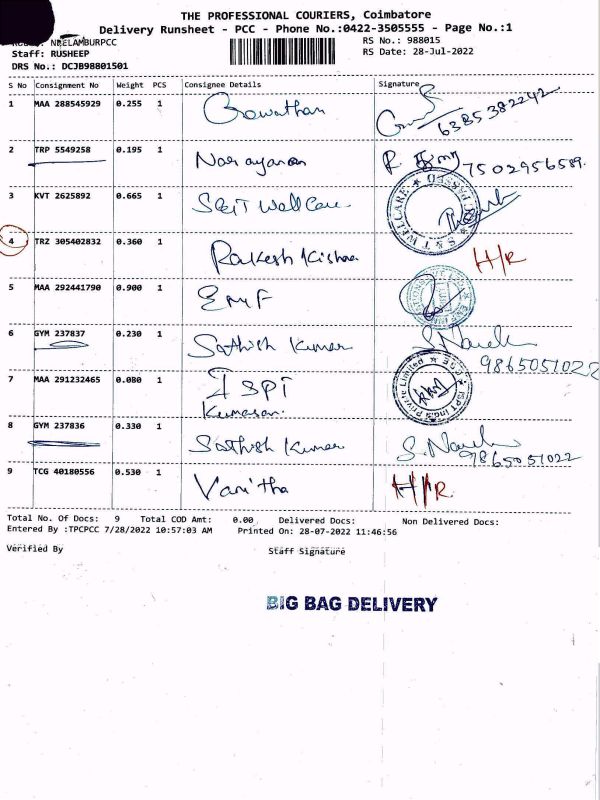 THE PROFESSIONAL COURIERS, Coimbatore
Delivery Runsheet - PCC - Phone No.:0422-3505555 - Page No.:1
NEELAMBURPCC
RS No.: 988015
Staff: RUSHEEP
RS Date: 28-Jul-2022
DRS No.: DCJB98801501
S No Consignment No Weight PCS Consignee Details Signature
1 MAA 288545929 0.255 1 Gowatham 6385382242
2 TRP 5549258 0.195 1 Narayanan 7502956589.
3 KVT 2625892 0.665 1 S&T Wellcare S&T WELCARE
4 TRZ 305402832 0.360 1 Rakesh Kishna H/R
5 MAA 292441790 0.900 1 EMF
6 GYM 237837 0.230 1 Sathish Kumar S. 9865051022
7 MAA 291232465 0.080 1 ISPT ISPT India Private Limited
Kumaran.
8 GYM 237836 0.330 1 Sathish Kumar S. 9865051022
9 TCG 40180556 0.530 1 Vanitha H/R
Total No. Of Docs: 9 Total COD Amt: 0.00 Delivered Docs: Non Delivered Docs:
Entered By :TPCPCC 7/28/2022 10:57:03 AM Printed On: 28-07-2022 11:46:56
Verified By Staff Signature
BIG BAG DELIVERY